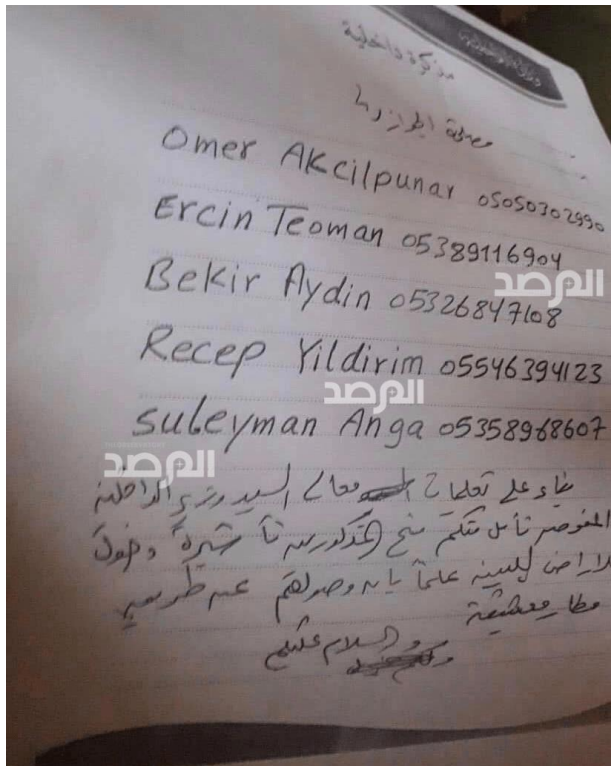 مذكرة داخلية
مصلحة الجوازات
Omer AKcilpunar 05050302990
Ercin Teoman 05389116904
المرصد
Bekir Aydin 05326847108
Recep Yildirim 05546394123
المرصد
suleyman Anga 05358968607
المرصد
بناء على تعليمات معالي السيد وزير الداخلية
المفوض نأمل منكم منح المذكورين تأشيرة دخول
لأراضي ليبية علماً بأن وصولهم عن طريق
مطار معيتيقة
والسلام عليكم